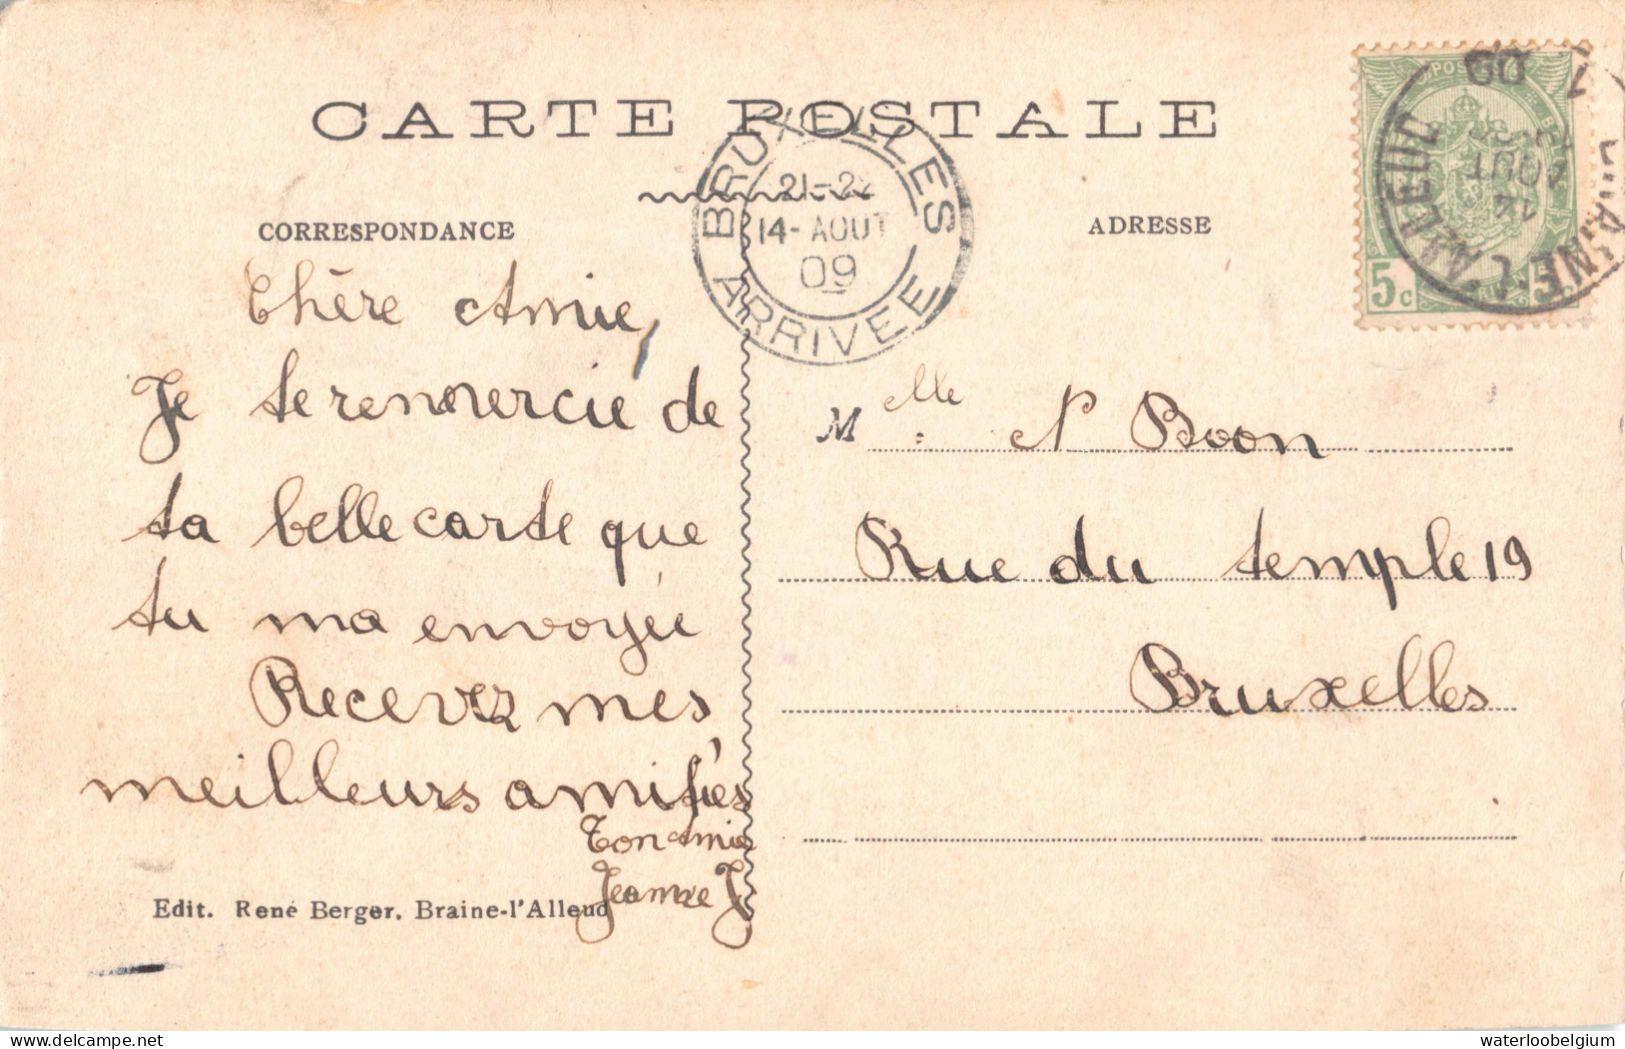 CARTE POSTALE
BRUXELLES
21-22
14-AOUT
09
ARRIVEE
BRAINE-L'ALLEUD
14
AOUT
09
5c
CORRESPONDANCE
ADRESSE
Chère Amie,
Je te remercie de
ta belle carte que
tu ma envoyée
Recevez mes
meilleurs amitiés
Ton Amie
Jeanne J.
Melle N Boon
Rue du temple 19
Bruxelles
Edit. René Berger. Braine-l'Alleud
waterloobelgium